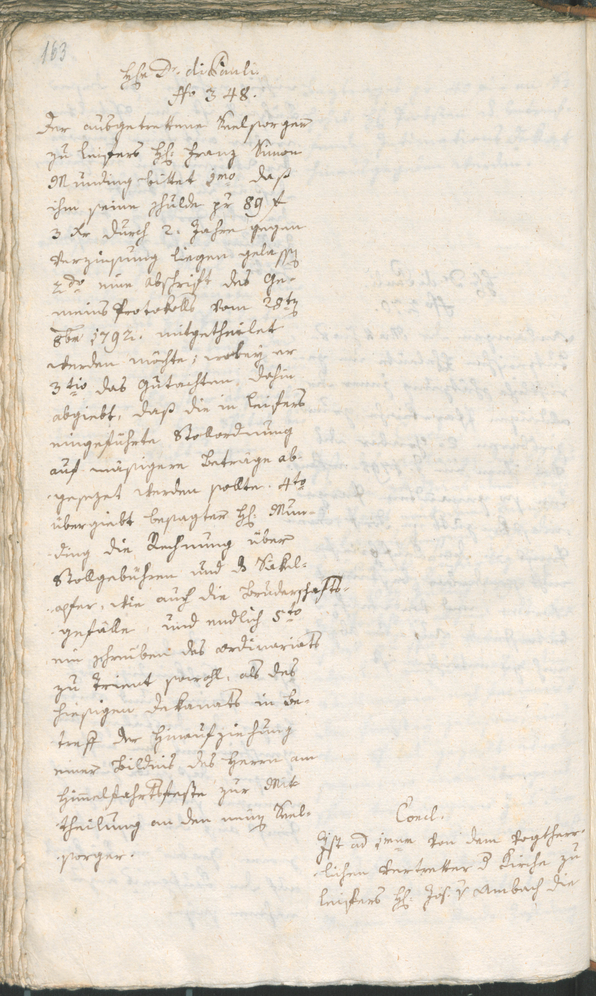 163
Hh: Dr. di Pauli
No 348.
Der ausgetrettene Seelsorger
zu Leifers Hh: Franz Simon
Munding bittet 1mo daß
ihm seine Schulde pr 89 f
3 Kr durch 2. Jahre gegen
Verzinsung liegen gelassen
2do eine Abschrift des Ge-
meins Protokolls vom 28ten
8ber 1792. mitgetheilet
werden möchte; wobey er
3tio das Gutachten dahin
abgiebt, daß die in Leifers
eingeführte Stollordnung
auf mäsigere Beträge ab-
gesezet werden sollte. 4to
übergiebt besagter Hh: Mun-
ding die Rechnung über
Stollgebühren und Sakel-
opfer, wie auch die Bruderschafts-
gefälle, und endlich 5to
ein Schreiben des Ordinariats
zu Trient sowohl, als des
hiesigen Dekanats in be-
treff der Hinaufziehung
einer Bildnis des Herrn am
Himmelfahrtsfeste zur Mit-
theilung an den neuen Seel-
sorger.
Concl.
Ist ad 1mum von dem Vogtherr-
lichen Vertretter d Kirche zu
Leifers Hh: Jos: v Ambach die